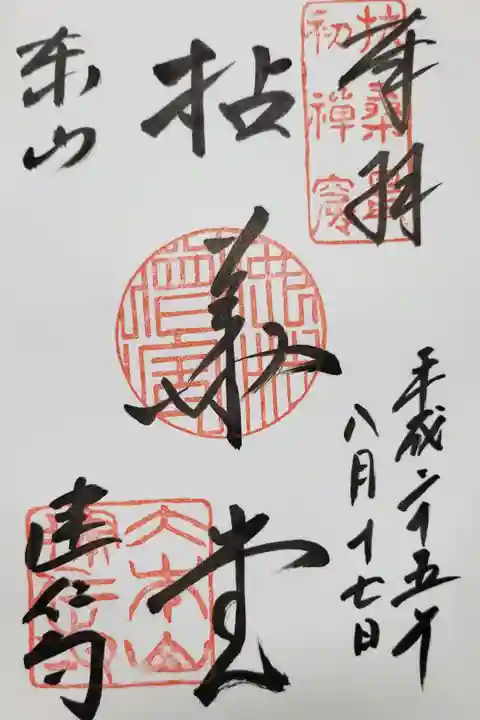 奉拝
扶桑最
初禅窟
平成二十五年
八月十七日
拈華堂
東山
建仁寺
大本山
建仁寺